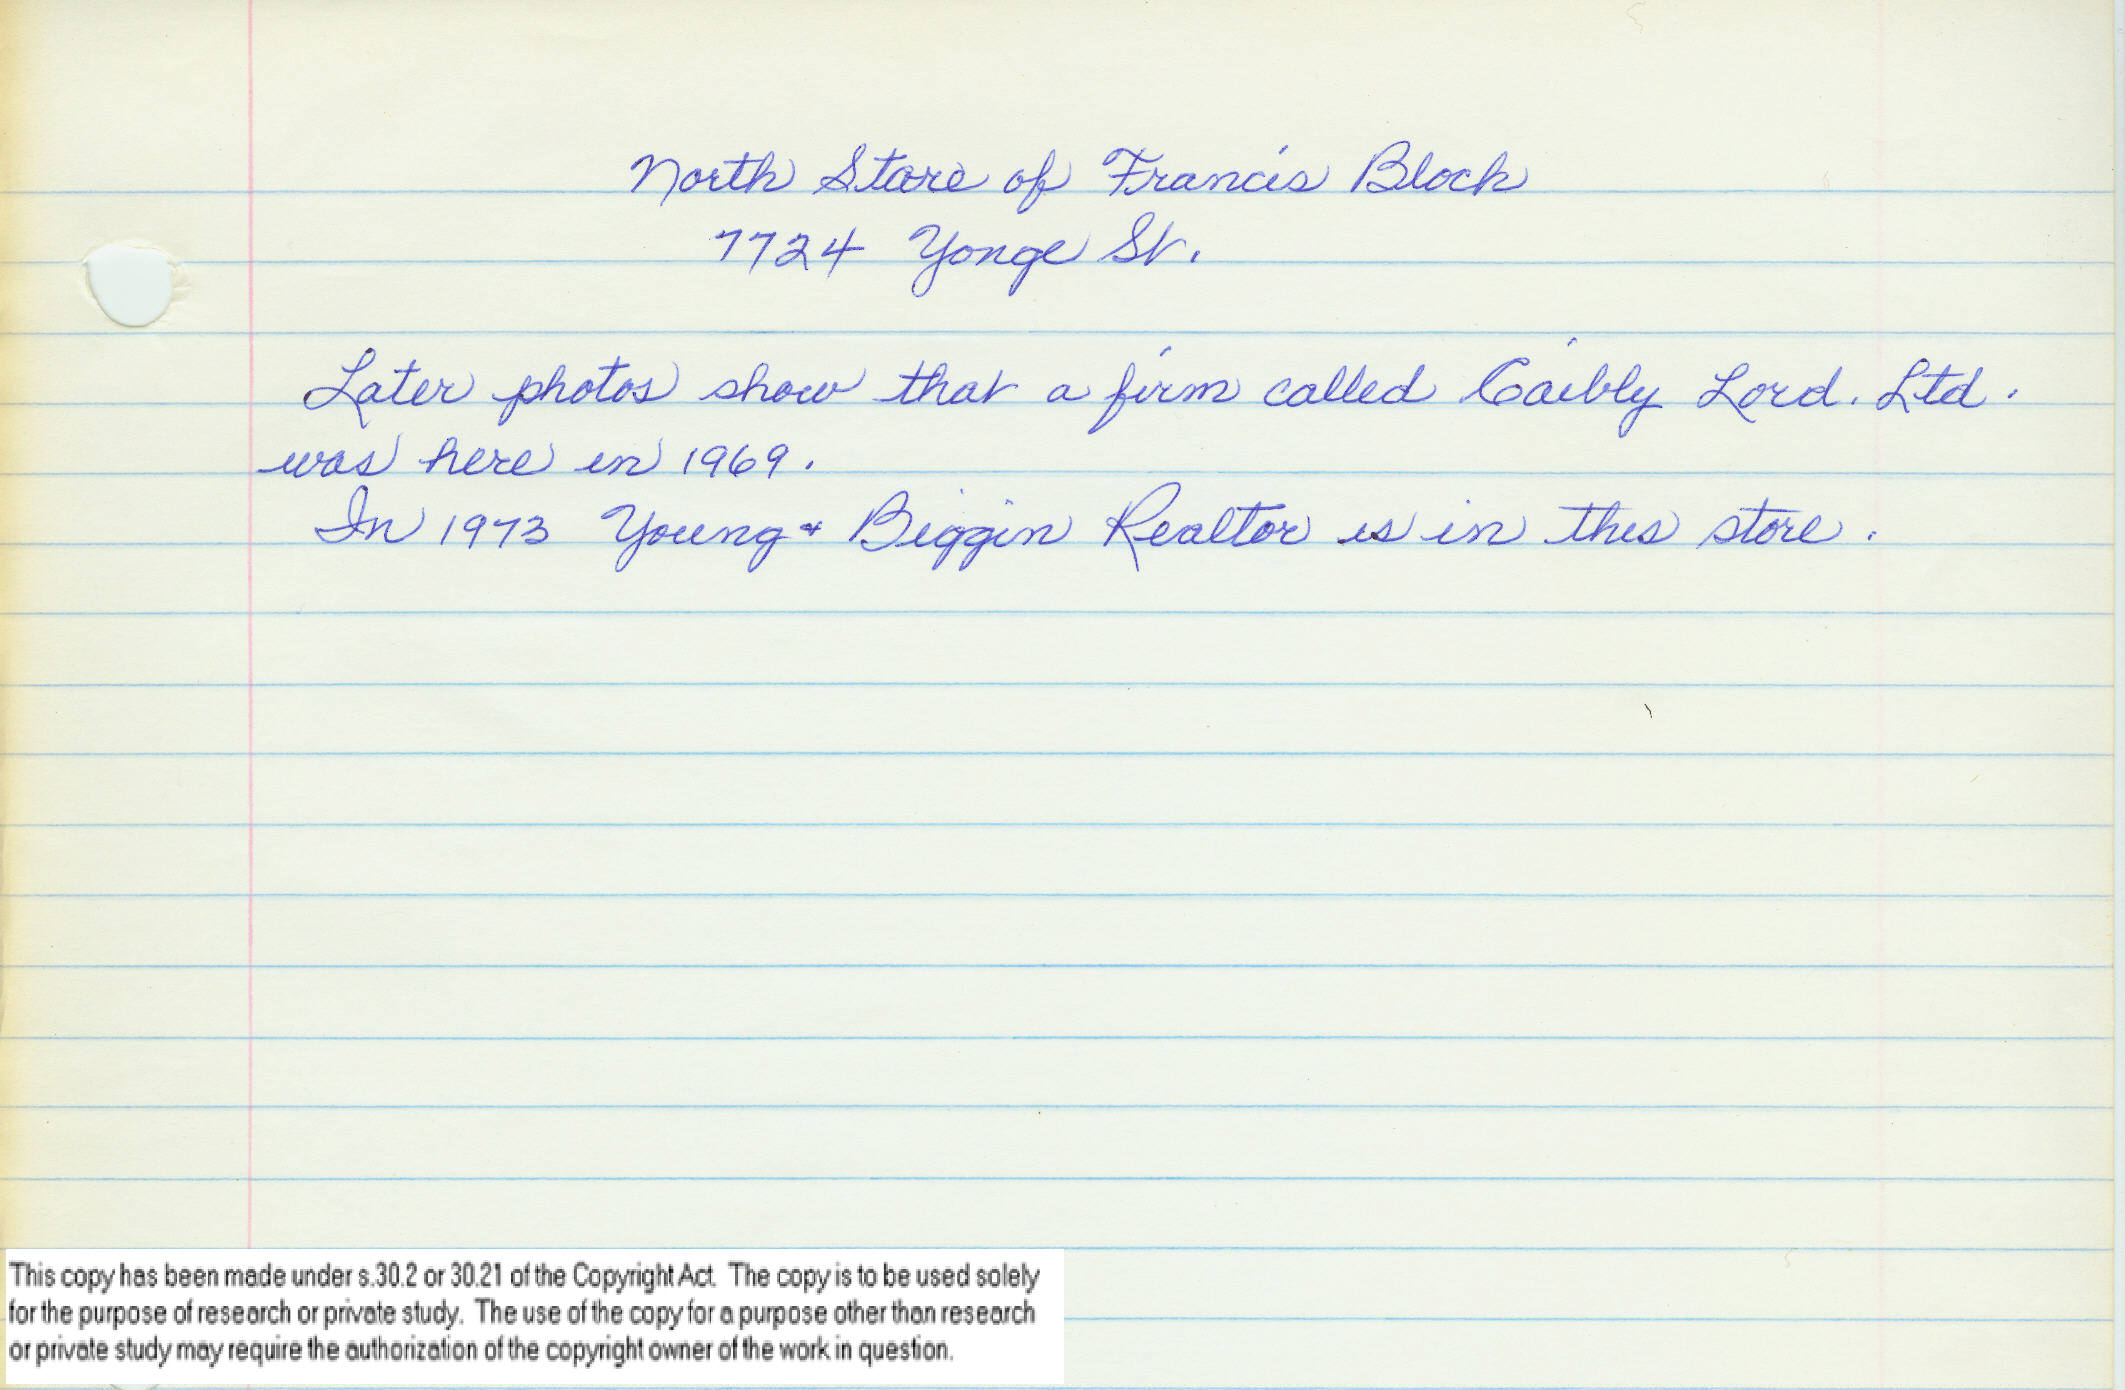 North Store of Francis Block
7724 Yonge St.
Later photos show that a firm called Lord. Ltd.
was here in 1969.
In 1973 Young & Biggin Realtor is in this store.
This copy has been made under s.30.2 or 30.21 of the Copyright Act. The copy is to be used solely
for the purpose of research or private study. The use of the copy for a purpose other than research
or private study may require the authorization of the copyright owner of the work in question.